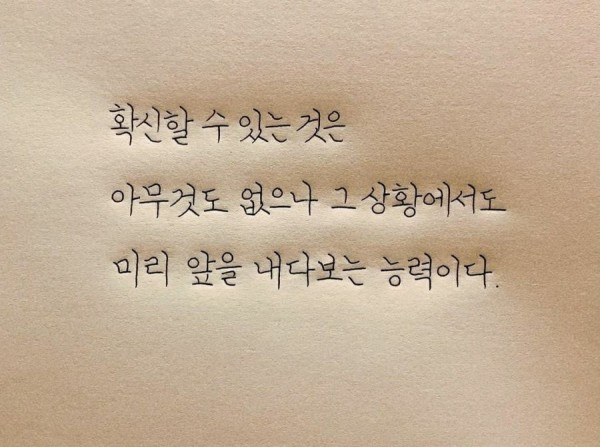 확신할 수 있는 것은
아무것도 없으나 그 상황에서도
미리 앞을 내다보는 능력이다.